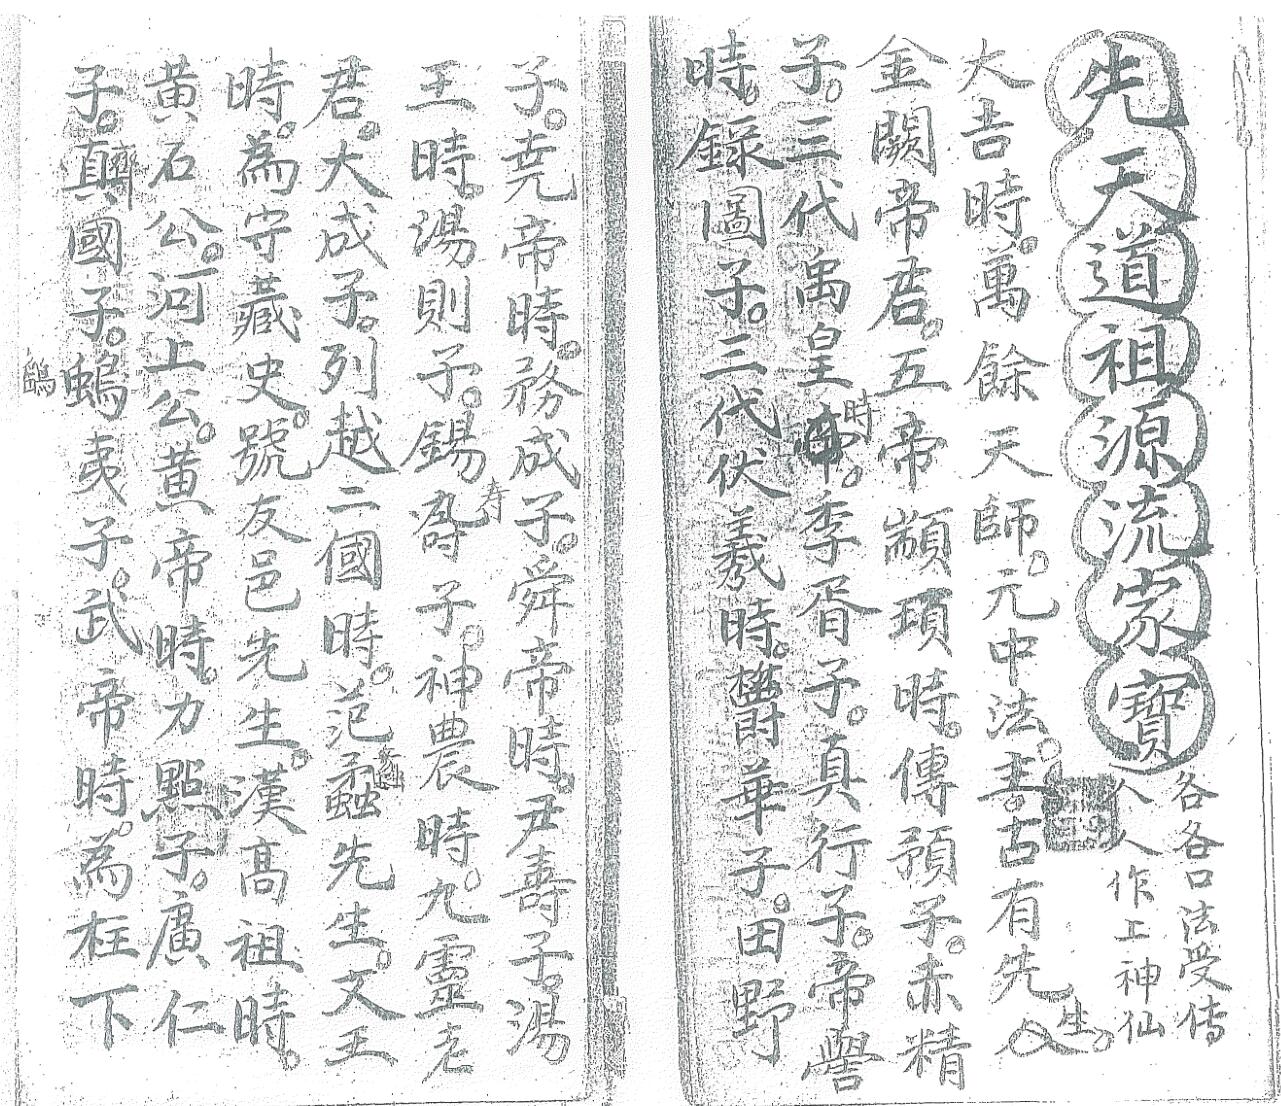 先天道祖源流家寶
各各口法受传
人人作上神仙
大吉時。萬餘天師。元中法主。古有先生。
金闕帝君。五帝顓頊時。傳預子。赤精
子。三代禹皇時。季胥子。真行子。帝嚳
時。錄圖子。三代伏羲時。欝華子。田野
子。尭帝時。務成子。舜帝時。尹壽子。湯
王時。湯則子。錫壽子。神農時。九靈老
君。大成子。列越二國時。范蠡先生。文王
時。為守藏史。號友邑先生。漢高祖時。
黃石公。河上公。黃帝時。力黙子。廣仁
子。真國子。鴟夷子。武帝時。為柱下